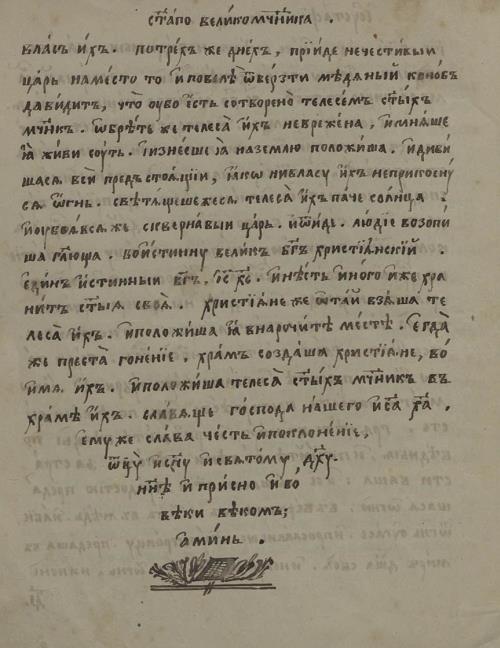 ст҃аго великомч҃ника .
власъ и́хъ . потре́хъ же дне́хъ , прїи́де нечести́выи
царь наместо то и҆повелѣ̀ ѿве́рзти мѣ́дяный коно́бъ
давидитъ , что̀ оубо є҆сть сотворено̀ телесе́мъ ст҃ы́хъ
мч҃никъ . ѡ҆брѣ́те же телеса̀ и҆́хъ невреже́на , и҆мня́ше
ꙗ҆̀ жи́ви соуть . и҆изне́сше ꙗ҆̀ назе́млю положи́ша . и҆диви́
шася всѝ предъстоѧ́щїи , ꙗ҆́кѡ нивласу̀ и҆́хъ неприкосну́
ся ѻ҆́гнь . свѣтѧ́шежеся телеса̀ и҆́хъ па́че со́лнца .
и҆оубоѧ́вся же скверна́выи ца́рь . и҆ѿи́де . лю́дїе возопи́
ша гл҃юща . вои́стинну вели́къ бг҃ъ христїѧ́нскїй .
є҆ди́нъ и҆́стинныи бг҃ъ . і҆с҃ хс҃ . и҆нѣ́сть и҆но́го и҆́же хра
ни́тъ ст҃ы́я своя̀ . христїѧ́не же ѿта́й взѧ́ша те
леса̀ и҆́хъ . и҆положи́ша ꙗ҆̀ внарочи́тѣ ме́стѣ . є҆гда̀
же преста̀ гоне́нїе . хра́мъ созда́ша христїѧ́не , во́
и҆́мя и҆́хъ . и҆положи́ша телеса̀ ст҃ы́хъ мч҃никъ въ
хра́мѣ и҆́хъ . сла́вяще го́спода на́шего і҆и҃са хр҃та̀ ,
ему́же сла́ва че́сть и҆поклоне́нїе ,
ѿц҃у̀ и҆сн҃у и҆свято́му дх҃у .
нн҃ѣ и҆ при́сно и҆во̀
вѣ́ки вѣко́мъ ;
а҆ми́нь .